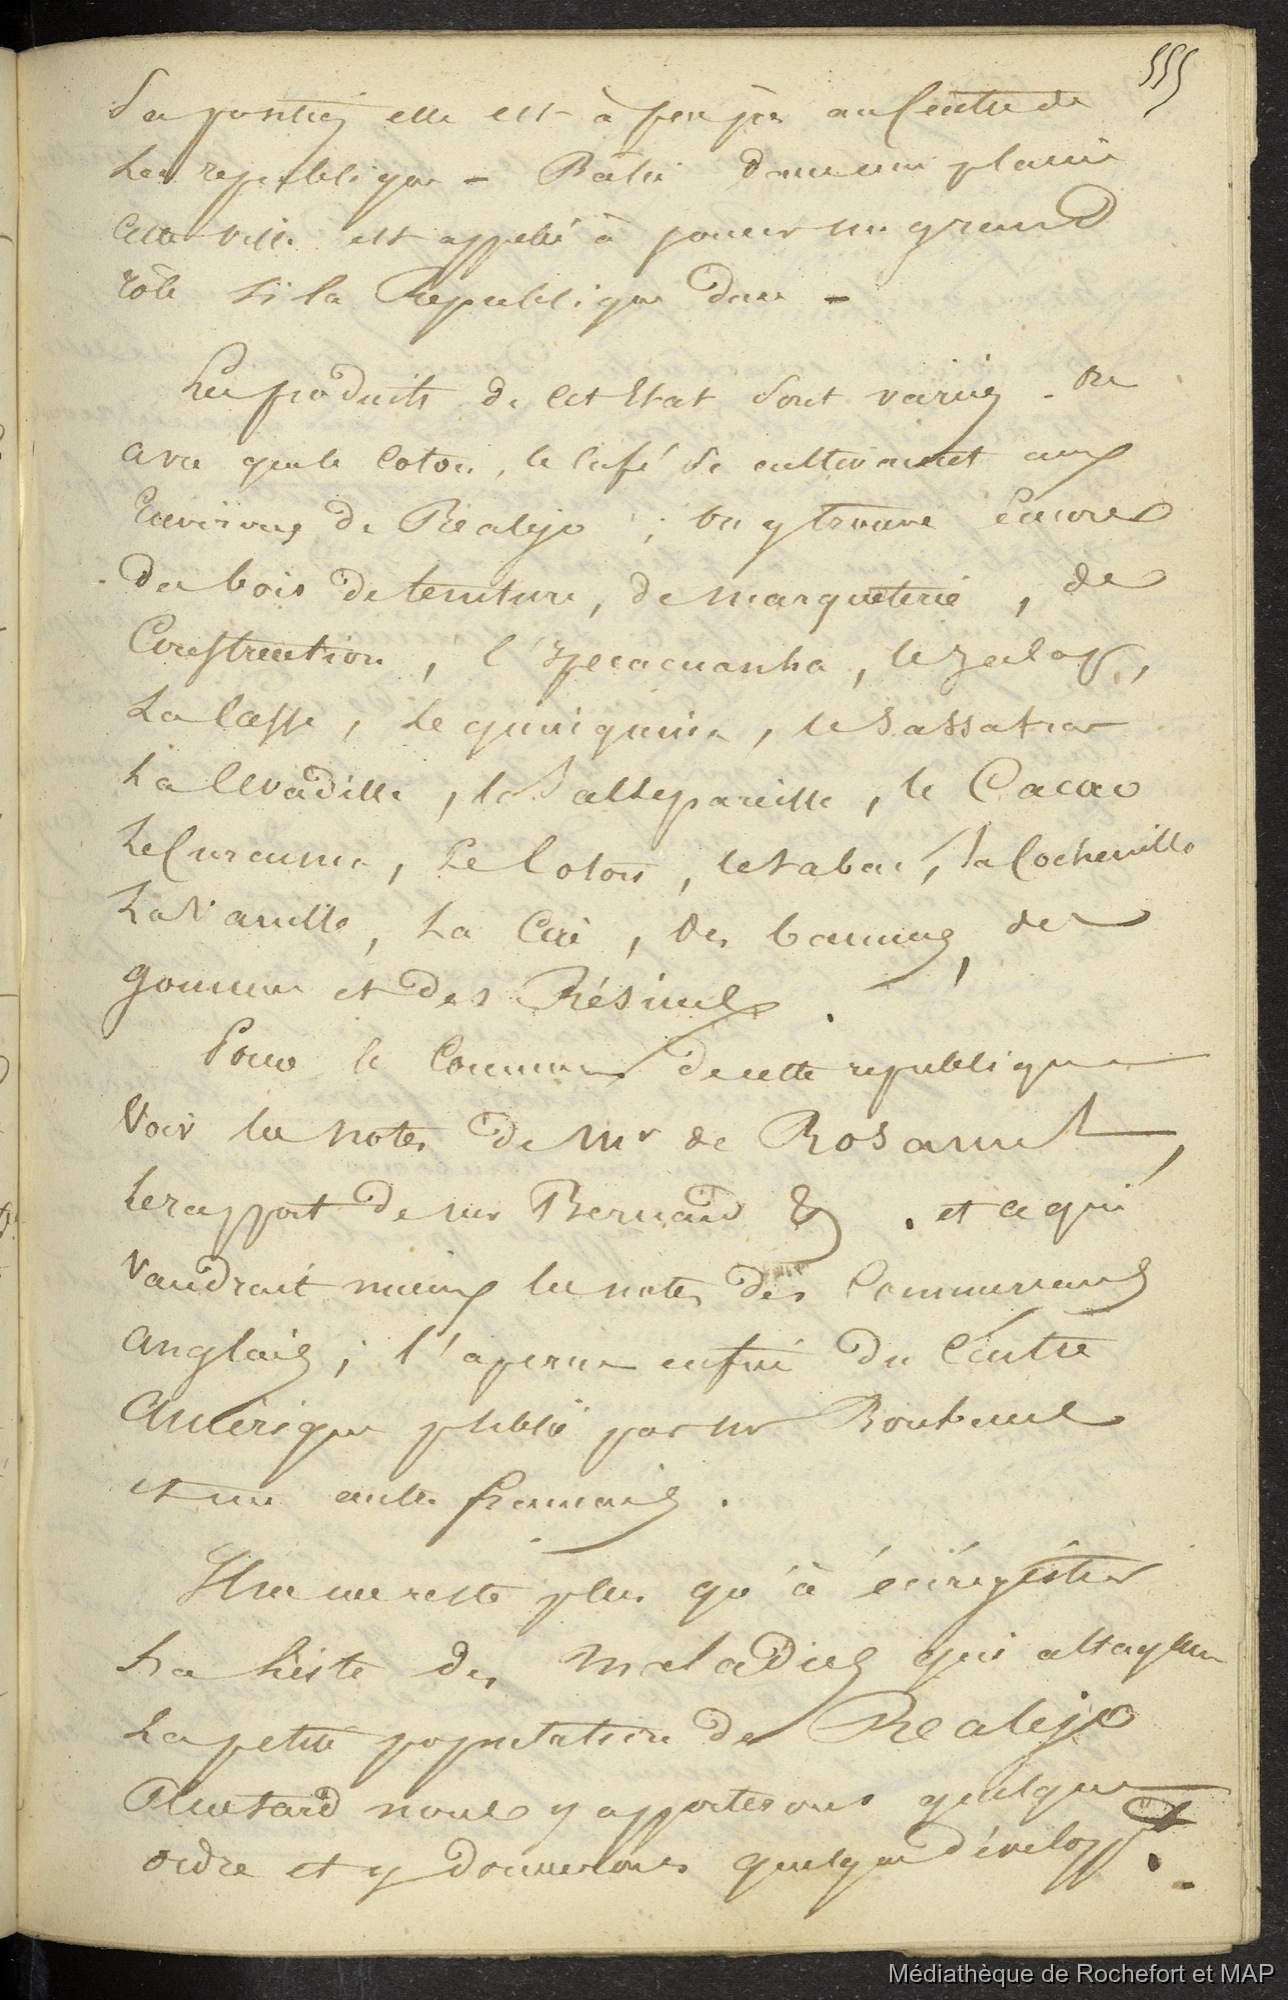 555
Sa position elle est à peu près au Centre de
La republique - Batie dans une plaine
Cette ville est appelée à jouer un grand
rôle si la Republique dure -
Les produits de Cet Etat sont variés - on
a vu que le Coton, le Café se cultivaient aux
Environs de Realejo ; on y trouve Encore
des bois de teinture, de marqueterie, de
Construction, l'Ypecacuanha, le Jalap,
La Casse, Le quinquina, le Sassafras
La Cévadille, la Salsepareille, le Cacao
Le Curcuma, Le Coton, le tabac, la Cochenille
La Vanille, La Cire, des baumes, des
gommes et des Résines.
Pour le Commerce de cette republique
Voir les notes de Mr de Rosamel,
Le rapport de mr Bernard & . et ce qui
Vaudrait mieux les notes des Commerçans
anglais ; l'aperçu enfin du Centre
Amérique publié par mr Bouteuil
et un autre français.
Il ne me reste plus qu'à énrégistrer
La Liste des maladies qui attaquent
La petite population de Realejo
Plus tard nous y apporterons quelque
ordre et y donnerons quelque dévelopt.
Médiathèque de Rochefort et MAP